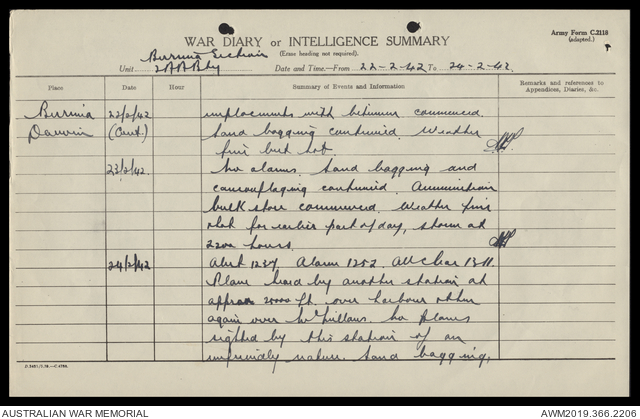 Army Form C.2118
(adapted.)
WAR DIARY or INTELLIGENCE SUMMARY
(Erase heading not required).
Burrima Section
Unit 2 A A Bty Date and Time—From 22-2-42 To 24-2-42.
Place Date Hour Summary of Events and Information Remarks and references to Appendices, Diaries, &c.
Burrima 22/2/42 emplacements with bitumen commenced.
Darwin (Cont.) Sand bagging continued. Weather
fine but hot.
23/2/42. No alarms. Sand bagging and
camouflaging continued. Ammunition
bulk store commenced. Weather fine
hot for earlier part of day, storm at
2200 hours.
24/2/42 Alert 1237 Alarm 1252. All Clear 1311.
Plane heard by another station at
approx 20000 ft. over harbour other
again over McMillans. No planes
sighted by this station of an
unfriendly nature. Sand bagging,
AUSTRALIAN WAR MEMORIAL
AWM2019.366.2206